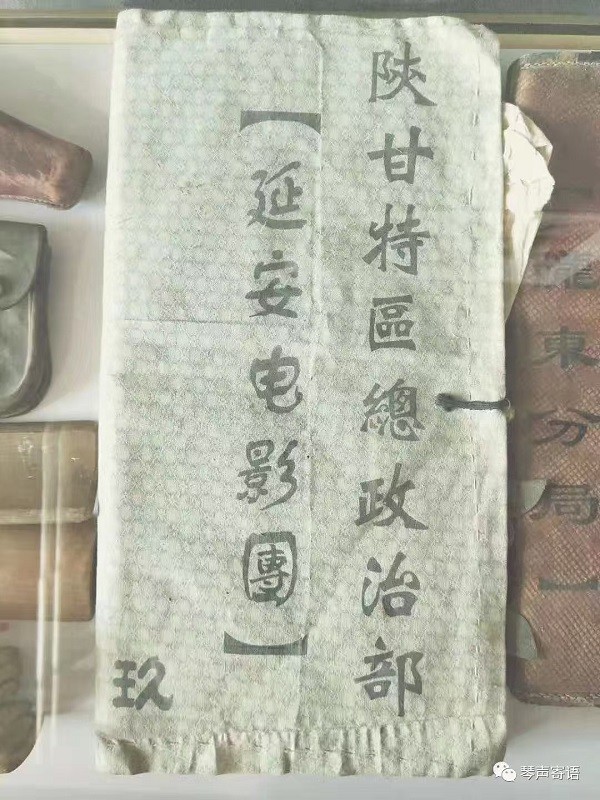 陝甘特區總政治部
【延安电影團】
玖
隴東分局】
琴声寄语